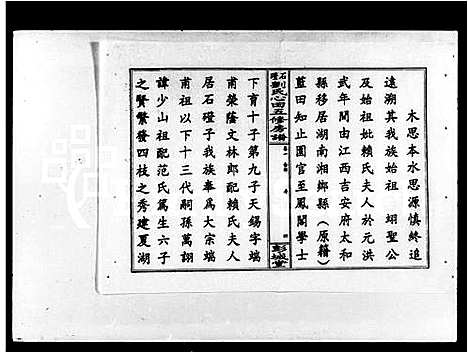 木思本水思源慎終追
遠溯其我族始祖 翊聖公
及始祖妣賴氏夫人於元洪
武年間由江西吉安府太和
縣移居湖南湘鄉縣(原籍)
藍田知止園官至鳳閣學士
石磴劉氏心田五修房譜
卷一
彭城堂
下育十子第九子天錫字端
甫榮蔭文林郎配賴氏夫人
居石磴子我族奉爲大宗端
甫祖以下十三代嗣孫萬翊
諱少山祖配范氏篤生六子
之賢繁發四枝之秀建夏湖